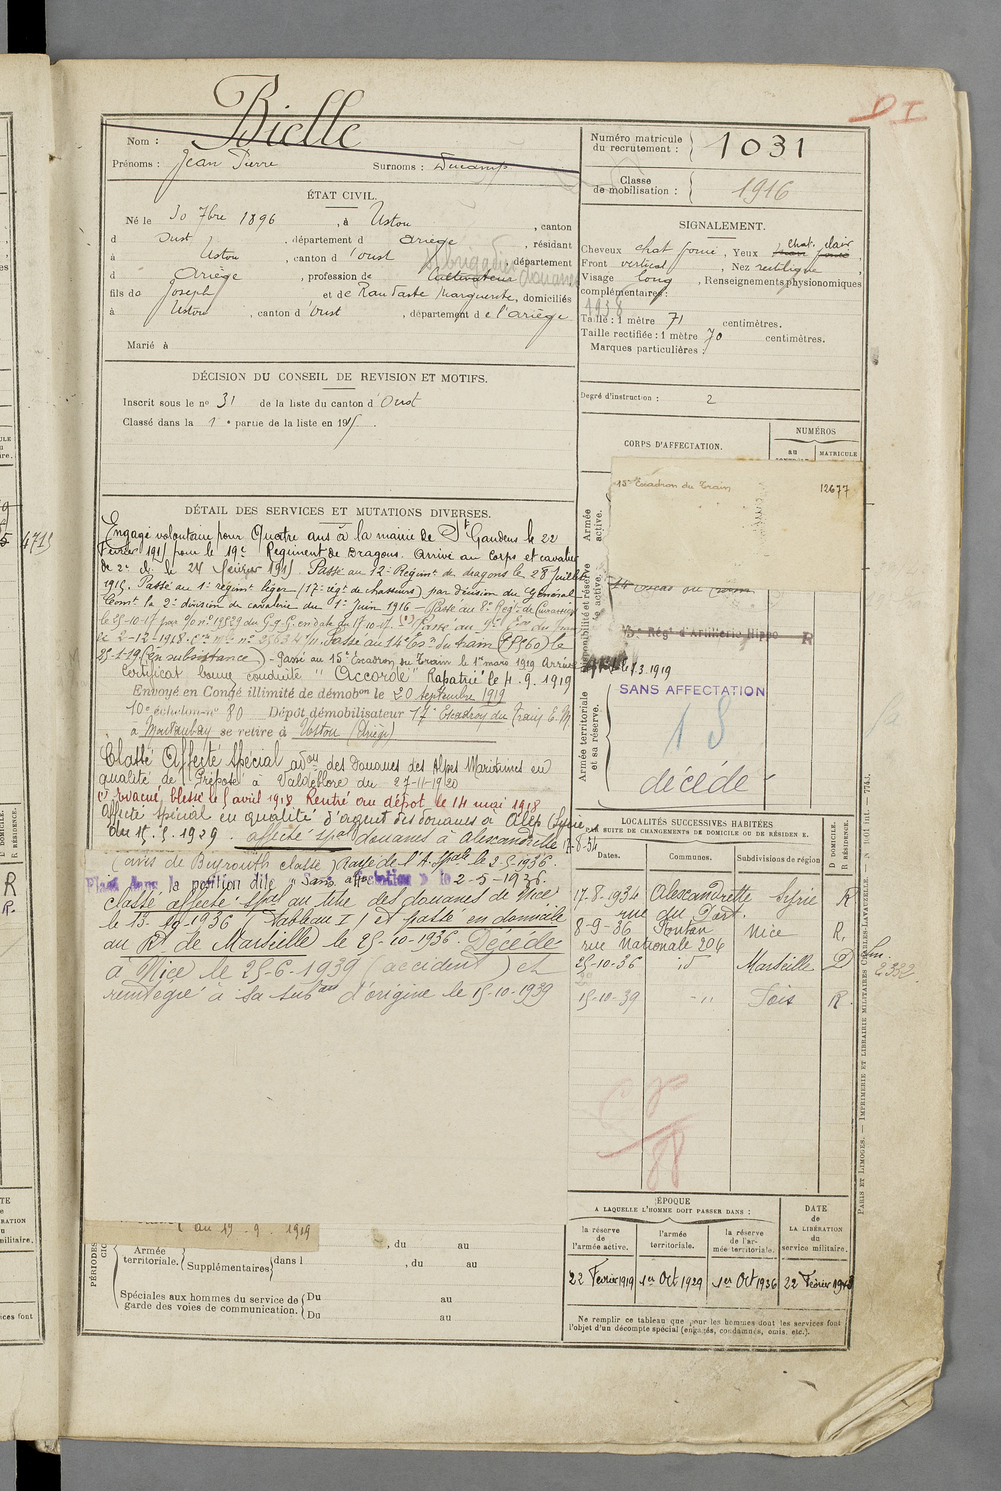 Bielle
D I
Nom :
Prénoms : Jean Pierre Surnoms : Ducamp
Numéro matricule du recrutement : 1031
Classe de mobilisation : 1916
ÉTAT CIVIL.
Né le 30 7bre 1896, à Ustou, canton
d Oust, département d Ariège, résidant
à Ustou, canton d'Oust, département
d Ariège, profession de Cultivateur
fils de Joseph et de Marguerite, domiciliés
à Ustou, canton d'Oust, département de l'Ariège
Marié à
SIGNALEMENT.
Cheveux chat foncé, Yeux chat. clair
Front vertical, Nez rectiligne
Visage long, Renseignements physionomiques
complémentaires :
1938
Taille : 1 mètre 71 centimètres.
Taille rectifiée : 1 mètre 70 centimètres.
Marques particulières :
DÉCISION DU CONSEIL DE REVISION ET MOTIFS.
Inscrit sous le no 31 de la liste du canton d'Oust
Classé dans la 1e partie de la liste en 1915.
Degré d'instruction : 2
CORPS D'AFFECTATION.
NUMÉROS
au
MATRICULE
15e Escadron du Train 12677
Armée active.
Disponibilité et réserve de l'armée active.
Régt d'Artillerie Hippo R
1.3.1919
SANS AFFECTATION
Armée territoriale et sa réserve.
décédé
DÉTAIL DES SERVICES ET MUTATIONS DIVERSES.
Engagé volontaire pour Quatre ans à la mairie de St Gaudens le 22
Février 1915 pour le 19e Régiment de Dragons. Arrivé au Corps et cavalier
de 2e cl. le 24 février 1915 Passé au 12e Régimt de dragons le 28 Juillet
1915. Passé au 1er régimt léger (17e régt de chasseurs) par décision du Général
Commt la 2e division de cavalerie du 1er Juin 1916 - Passé au 8e Régt de Cuirassiers
le 25-10-17
le 2-12-1918. Passé au 14e Esn du train le
25-1-19 (en subsistance) - Passé au 15e Escadron du Train le 1er mars 1919
Certificat bonne conduite "Accordé" Rapatrié le 4.9.1919
Envoyé en Congé illimité de démobon le 20 septembre 1919
10e échelon no 80 Dépôt démobilisateur 17e Escadron du Train E.M
à Montauban se retire à Ustou (Ariège)
Classé Affecté Spécial adon des Douanes des Alpes Maritimes en
qualité de Préposé à Valdeblore du 27-11-1920
Evacué blessé le 5 avril 1918 Rentré au dépôt le 14 mai 1918
Affecté spécial en qualité d'agent des douanes à Alep Syrie
du 15.5.1929. affecté spal douanes à Alexandrette 17-8-34
(avis de Beyrouth classé) Rayé de l'A. Spale le 2-5-1936.
Placé dans la position dite "Sans affectation" le 2-5-1936.
classé affecté spal au titre des douanes de Nice
le 13-10-1936 (Tableau I) et passé en domicile
au Rt de Marseille le 25-10-1936. Décédé
à Nice le 25-6-1939 (accident) et
réintégré à sa subon d'origine le 15-10-1939
LOCALITÉS SUCCESSIVES HABITÉES
PAR SUITE DE CHANGEMENTS DE DOMICILE OU DE RÉSIDENCE.
Dates. Communes. Subdivisions de région D DOMICILE. R RÉSIDENCE.
17-8-1934 Alexandrette Syrie R
rue du Port.
8-9-36 Nice R.
rue Nationale 206
25-10-36 id Marseille D
15-10-39 -"- Foix R.
2332
88
au 19-9-1919
, du au
Armée territoriale. Supplémentaires dans l , du au
Spéciales aux hommes du service de garde des voies de communication. Du au
Du au
ÉPOQUE
A LAQUELLE L'HOMME DOIT PASSER DANS :
la réserve de l'armée active.
l'armée territoriale.
la réserve de l'armée territoriale.
DATE de LA LIBÉRATION du service militaire.
22 Février 1919 1er Oct 1929 1er Oct 1936 22 Février
Ne remplir ce tableau que pour les hommes dont les services font
l'objet d'un décompte spécial (engagés, condamnés, omis, etc.).
PARIS ET LIMOGES. — IMPRIMERIE ET LIBRAIRIE MILITAIRES CHARLES-LAVAUZELLE.